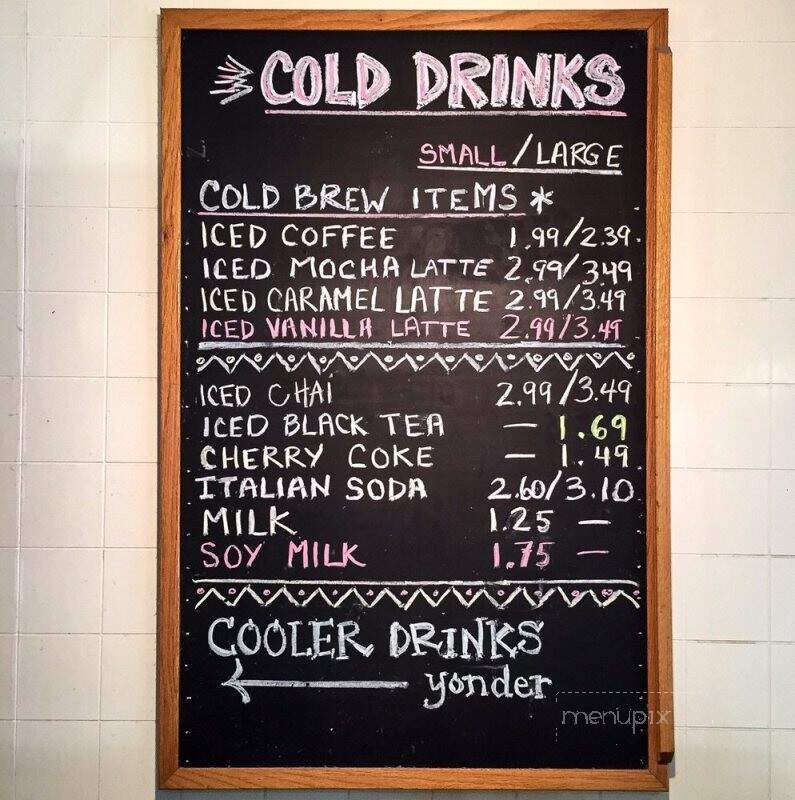 COLD DRINKS
SMALL/LARGE
COLD BREW ITEMS *
ICED COFFEE 1.99/2.39
ICED MOCHA LATTE 2.99/3.49
ICED CARAMEL LATTE 2.99/3.49
ICED VANILLA LATTE 2.99/3.49
ICED CHAI 2.99/3.49
ICED BLACK TEA — 1.69
CHERRY COKE — 1.49
ITALIAN SODA 2.60/3.10
MILK 1.25 —
SOY MILK 1.75 —
COOLER DRINKS
← yonder
menupix